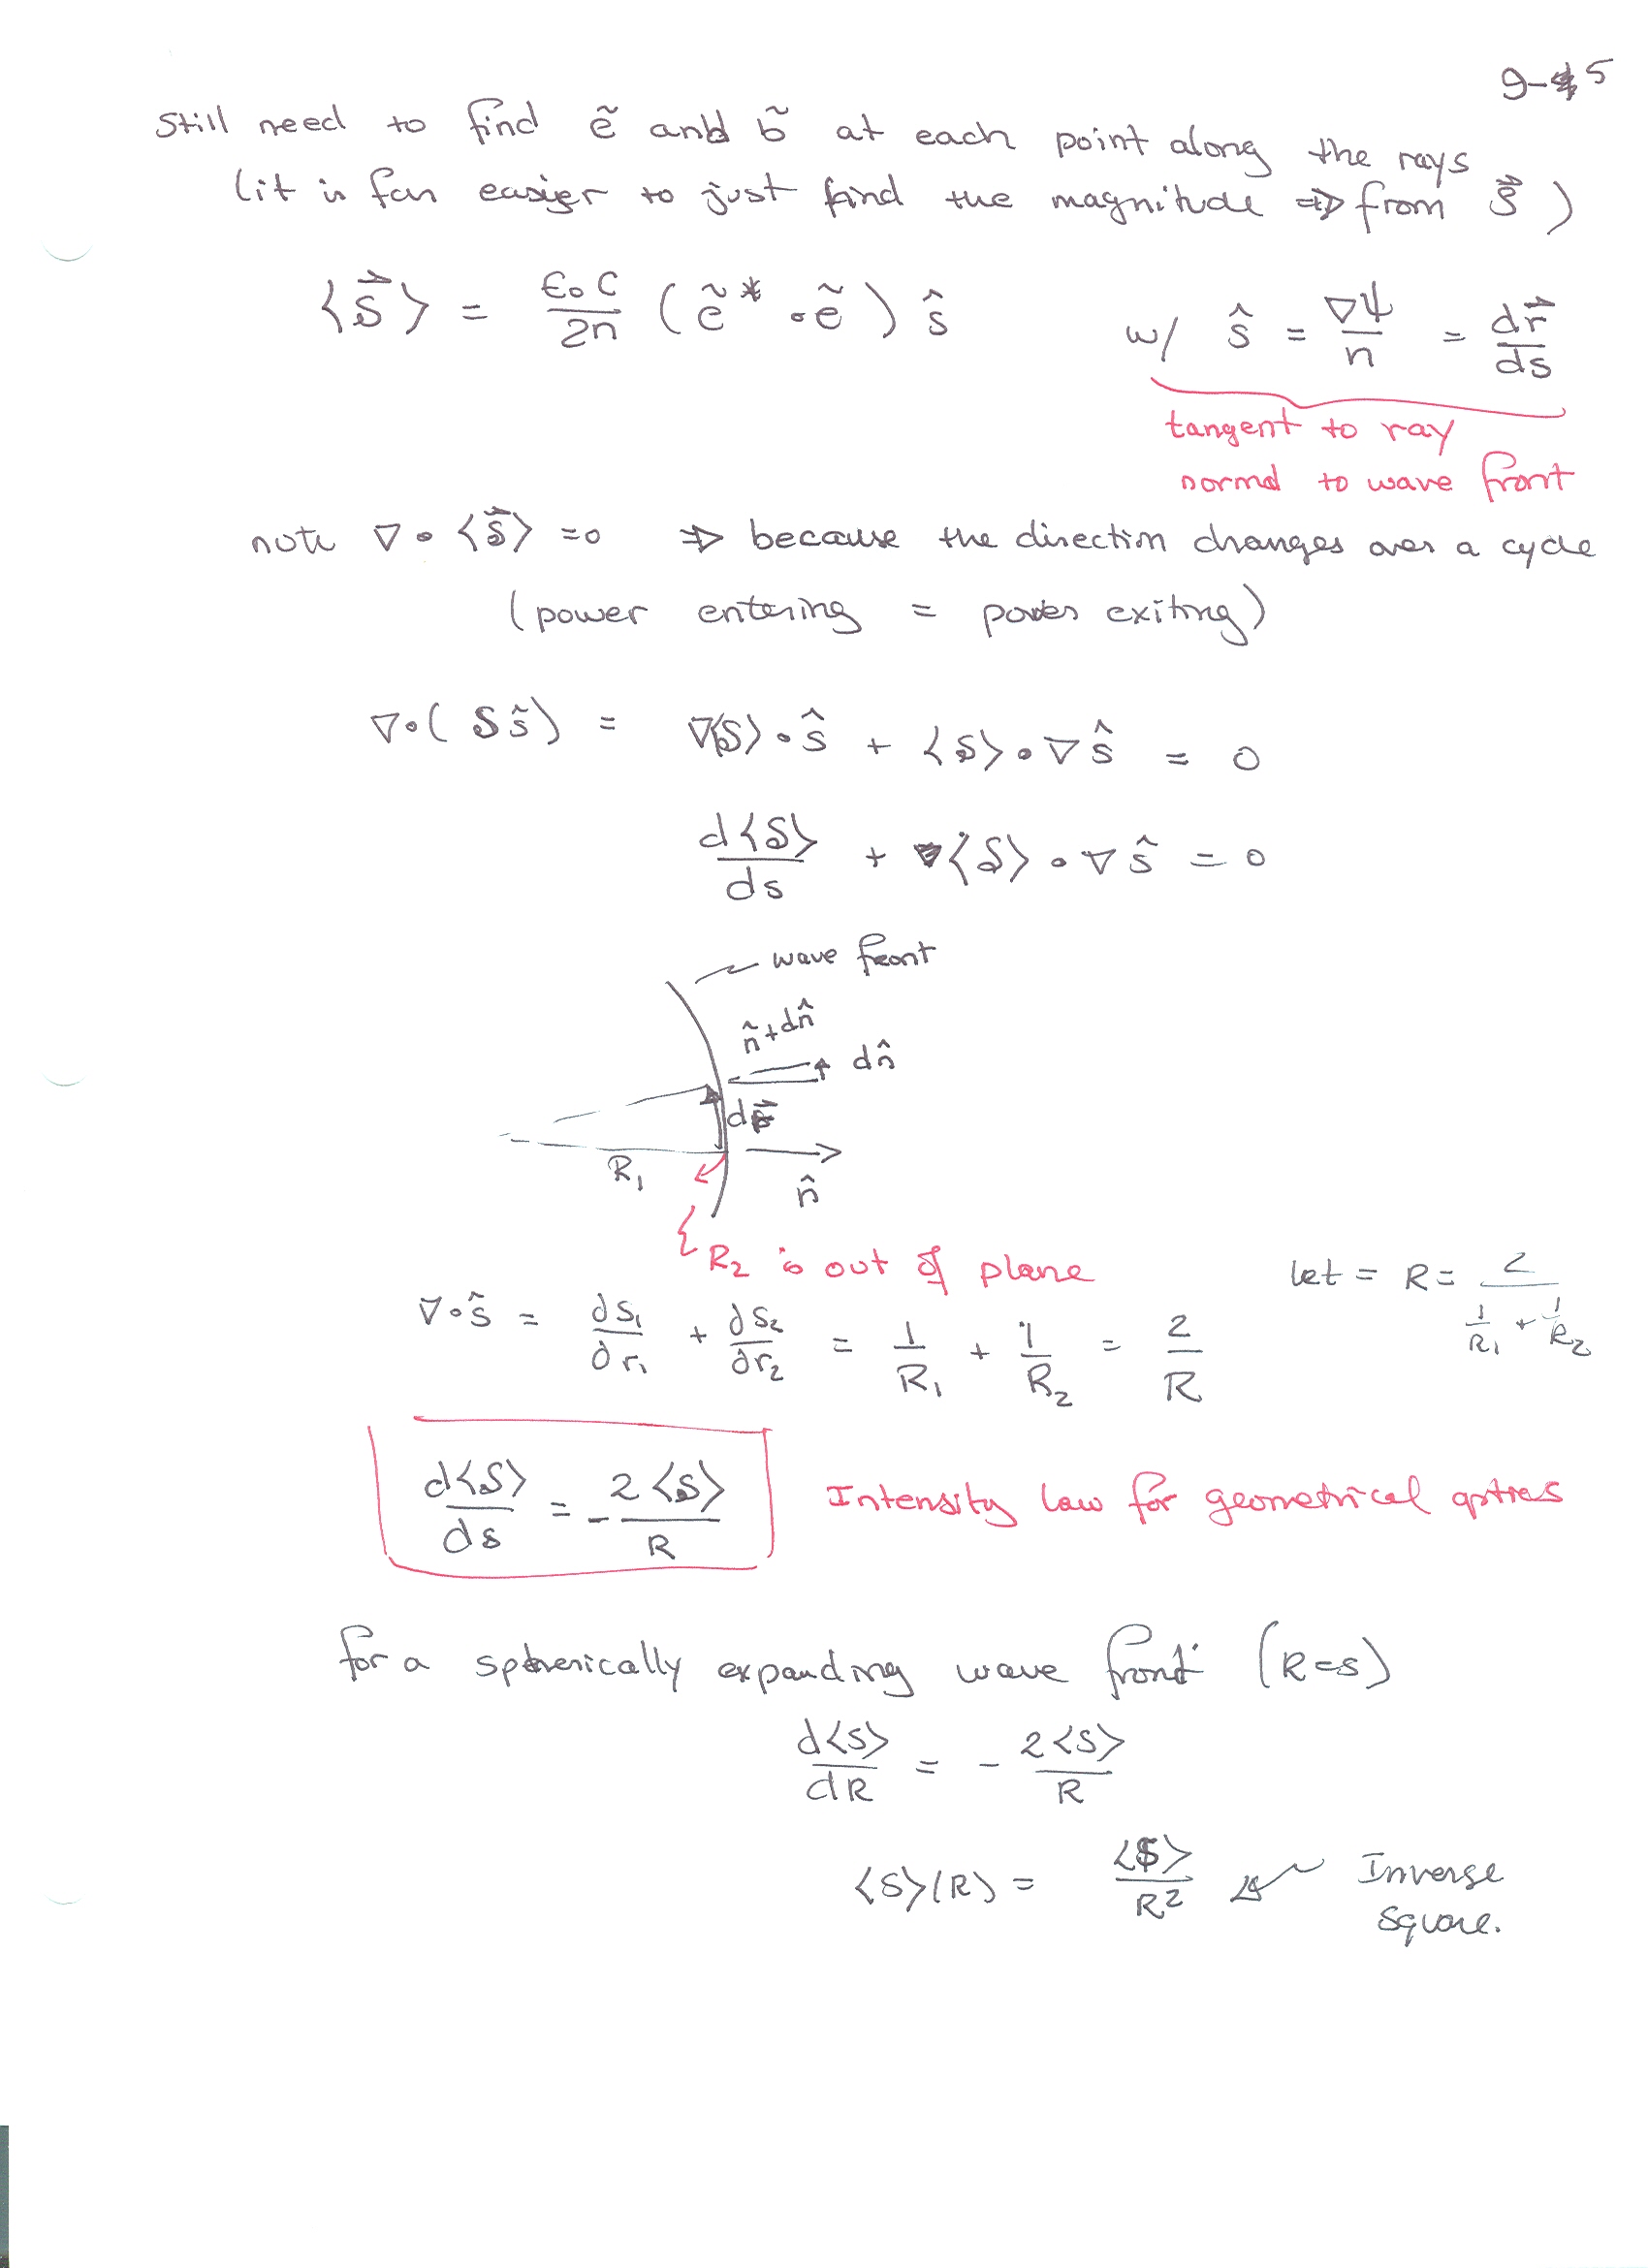 9-5
Still need to find ẽ and b̃ at each point along the rays
(it is far easier to just find the magnitude ⇒ from S⃗ )
⟨S⃗⟩ = ε₀c/2n (ẽ* · ẽ) ŝ w/ ŝ = ∇ψ/n = dr⃗/ds
tangent to ray
normal to wave front
note ∇ · ⟨S⃗⟩ = 0 ⇒ because the direction changes over a cycle
(power entering = power exiting)
∇·( S ŝ ) = ∇⟨S⟩ · ŝ + ⟨S⟩ · ∇ ŝ = 0
d⟨S⟩/ds + ⟨S⟩ · ∇ ŝ = 0
wave front
n̂ + dn̂
dn̂
R₁
n̂
R₂ is out of plane
let = R = 2/(1/R₁ + 1/R₂)
∇·ŝ = ∂s₁/∂r₁ + ∂s₂/∂r₂ = 1/R₁ + 1/R₂ = 2/R
d⟨S⟩/ds = - 2⟨S⟩/R Intensity law for geometrical optics
for a spherically expanding wave front (R=s)
d⟨S⟩/dR = - 2⟨S⟩/R
⟨S⟩(R) = ⟨S⟩/R² Inverse
Square.